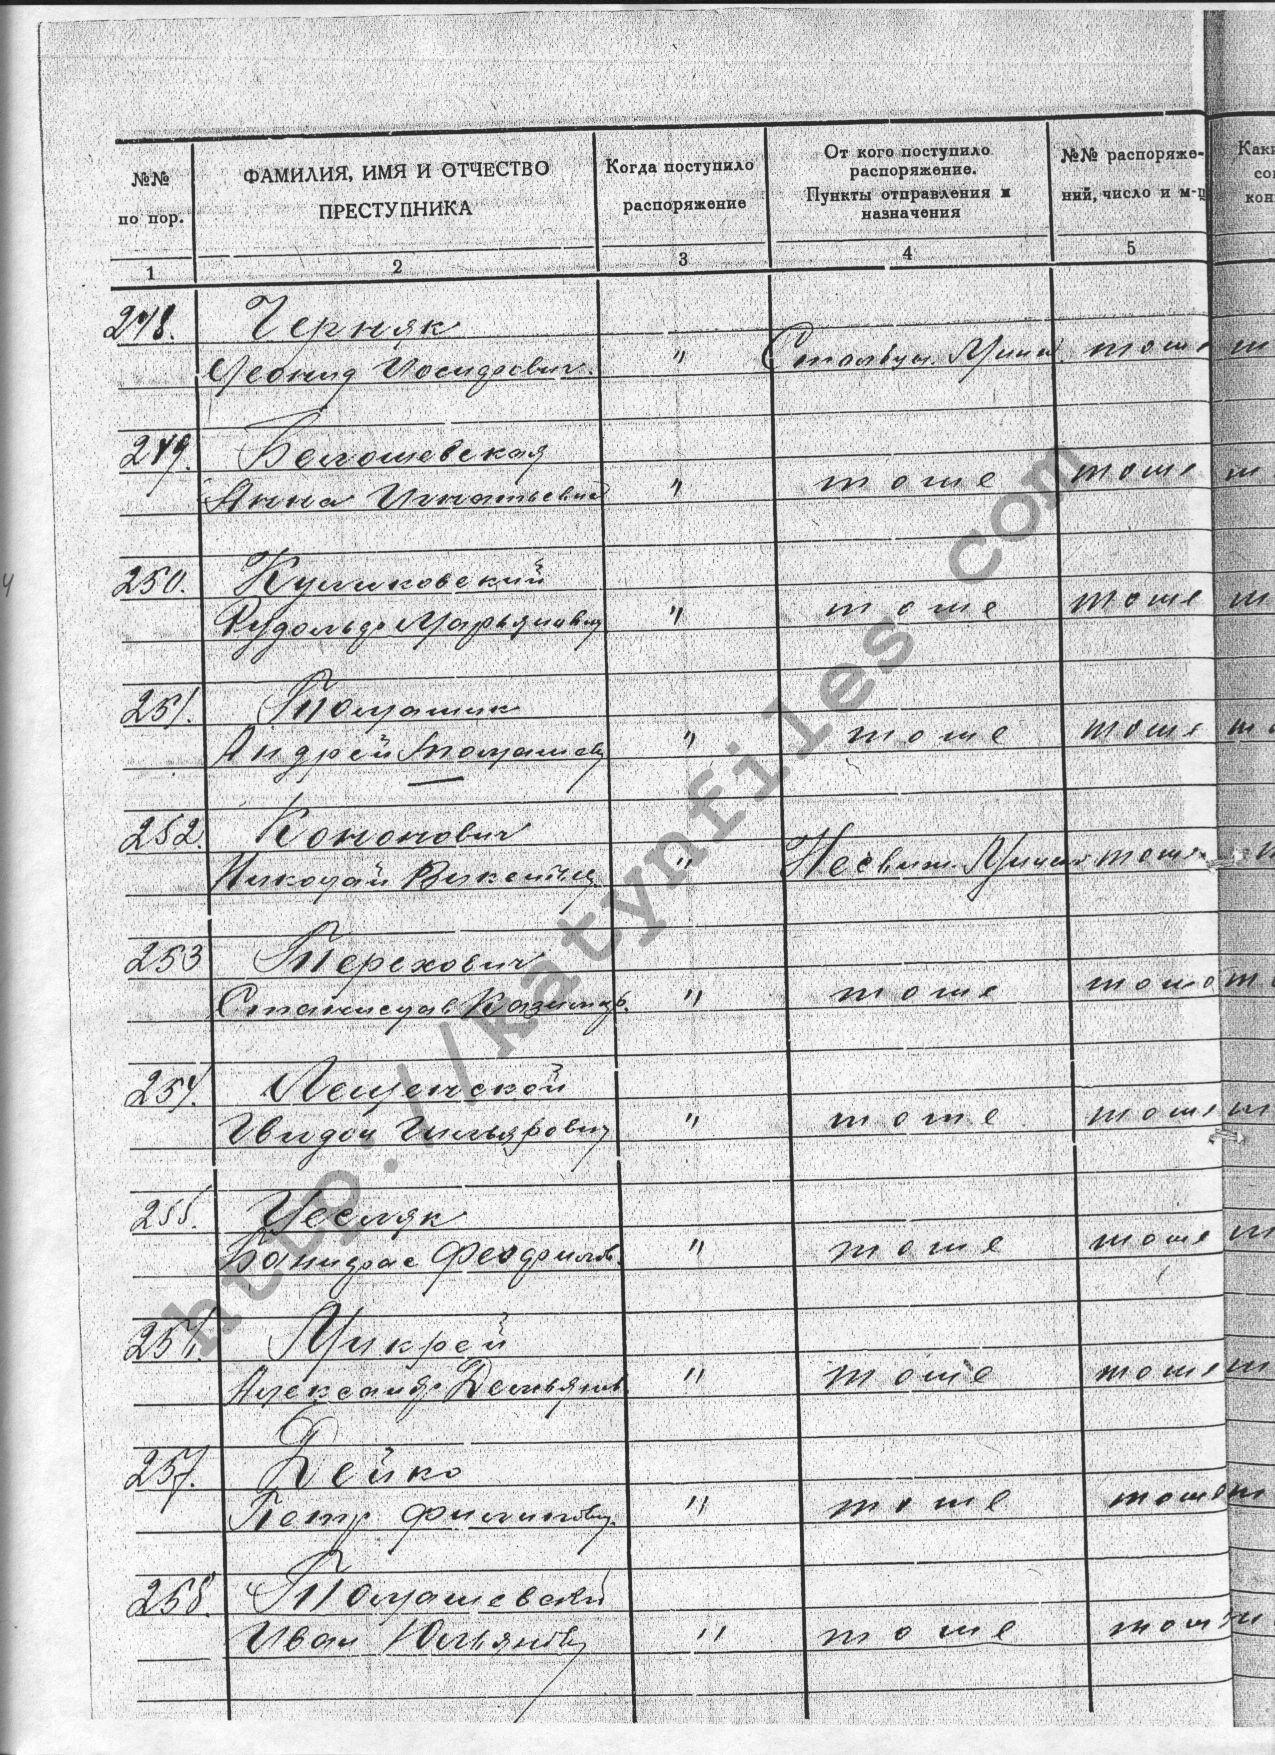 №№ по пор.
ФАМИЛИЯ, ИМЯ И ОТЧЕСТВО ПРЕСТУПНИКА
Когда поступило распоряжение
От кого поступило распоряжение.
Пункты отправления и назначения
№№ распоряже-
ний, число и м-ц
1 2 3 4 5
248. Черняк
Леонид Иосифович. " Столбцы. Минс. тоже
249. Белошевская
Анна Игнатьевна " тоже тоже
250. Куликовский
Рудольф Марьянович " тоже тоже
251. Томашик
Андрей Томашев " тоже тоже
252. Кононович
Николай Викентьев " Несвиж. Минск тоже
253 Терехович
Станислав Казимир. " тоже тоже
254. Лещенской
" тоже тоже
255. Чесляк
" тоже тоже
Микрей
Александр Демьянов " тоже тоже
257. Дейко
Петр Филипов. " тоже тоже
258. Томашевский
Иван Юльянов " тоже тоже
http://katynfiles.com